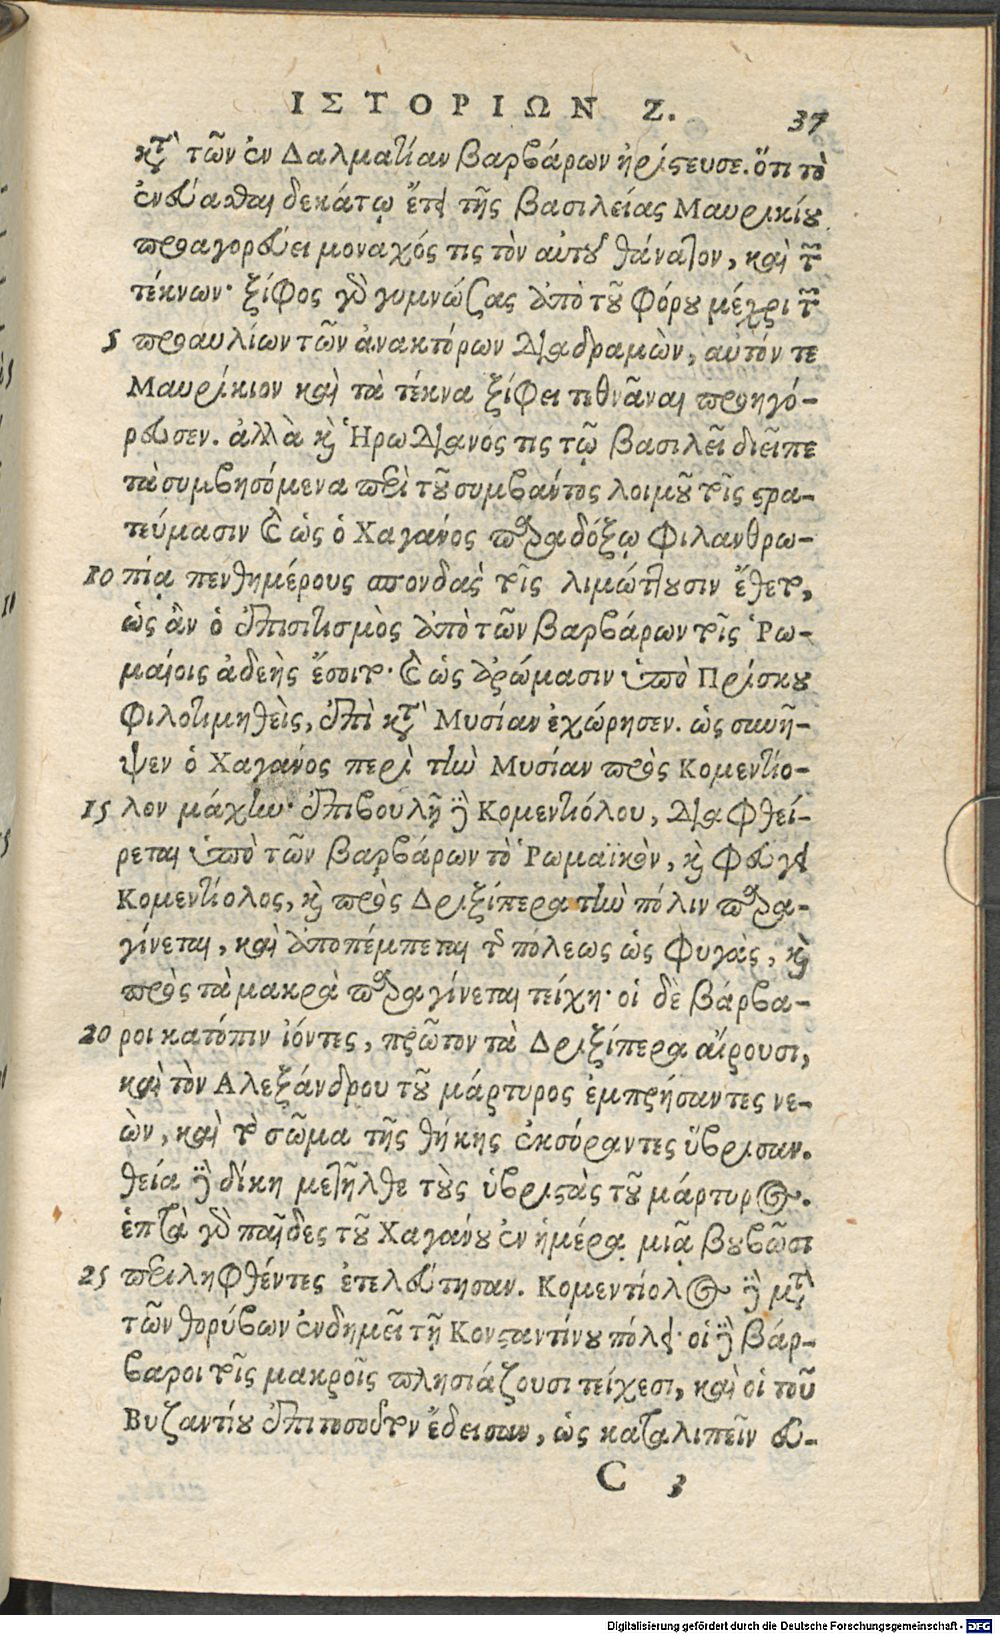 ΙΣΤΟΡΙΩΝ Ζ. 37
κτ̀ τῶν ἐν Δαλματίαν βαρβάρων ἠρίστευσε. ὅτι τὸ
ἐνδεκάτῳ ἔτει τῆς βασιλείας Μαυρικίου
προαγορεύει μοναχός τις τὸν αὐτοῦ θάνατον, καὶ τῶν
τέκνων· ξίφος γὸ γυμνώσας ἀπὸ τοῦ Φόρου μέχρι τῶν
5 προαυλίων τῶν ἀνακτόρων διαδραμὼν, αὐτόν τε
Μαυρίκιον καὶ τὰ τέκνα ξίφει τεθνᾶναι προηγό-
ρευσεν. ἀλλὰ κὶ Ἡρωδιανός τις τῷ βασιλεῖ διεῖπε
τὰ συμβησόμενα περὶ τοῦ συμβάντος λοιμοῦ τοῖς στρα-
τεύμασιν καὶ ὡς ὁ Χαγάνος παραδόξῳ φιλανθρω-
10 πίᾳ πενθημέρους σπονδὰς τοῖς λιμώττουσιν ἔθετο,
ὡς ἂν ὁ ἐπισιτισμὸς ἀπὸ τῶν βαρβάρων τοῖς Ῥω-
μαίοις ἀδεὴς ἔσοιτο· καὶ ὡς ἀρώμασιν ὑπὸ Πρίσκου
φιλοτιμηθεὶς, ἐπὶ κτ̀ Μυσίαν ἐχώρησεν. ὡς συνῆ-
ψεν ὁ Χαγάνος περὶ τὴν Μυσίαν πρὸς Κομεντίο-
15 λον μάχην· ἐπιβουλῇ δὲ Κομεντιόλου, διαφθεί-
ρεται ὑπὸ τῶν βαρβάρων τὸ Ῥωμαϊκὸν, κὶ φεύγει
Κομεντίολος, κὶ πρὸς Δριξίπερα τὴν πόλιν παρα-
γίνεται, καὶ ἀποπέμπεται τῆς πόλεως ὡς φυγὰς, κὶ
πρὸς τὰ μακρὰ παραγίνεται τείχη· οἱ δὲ βάρβα-
20 ροι κατόπιν ἰόντες, πρῶτον τὰ Δριξίπερα αἴρουσι,
καὶ τὸν Ἀλεξάνδρου τοῦ μάρτυρος ἐμπρήσαντες νε-
ὼν, καὶ τὸ σῶμα τῆς θήκης ἐκσύραντες ὕβρισαν.
θεία δὲ δίκη μετῆλθε τοὺς ὑβριστὰς τοῦ μάρτυρος.
ἑπτὰ γὸ παῖδες τοῦ Χαγάνου ἐν ἡμέρᾳ μιᾷ βουβῶσι
25 περιληφθέντες ἐτελεύτησαν. Κομεντίολος δὲ μτ̀
τῶν θορύβων ἐνδημεῖ τῇ Κωνσταντίνου πόλει· οἱ δὲ βάρ-
βαροι τοῖς μακροῖς πλησιάζουσι τείχεσι, καὶ οἱ τοῦ
Βυζαντίου ἐπὶ τοσοῦτον ἔδεισαν, ὡς καταλιπεῖν εὐ-
C 3
Digitalisierung gefördert durch die Deutsche Forschungsgemeinschaft - DFG